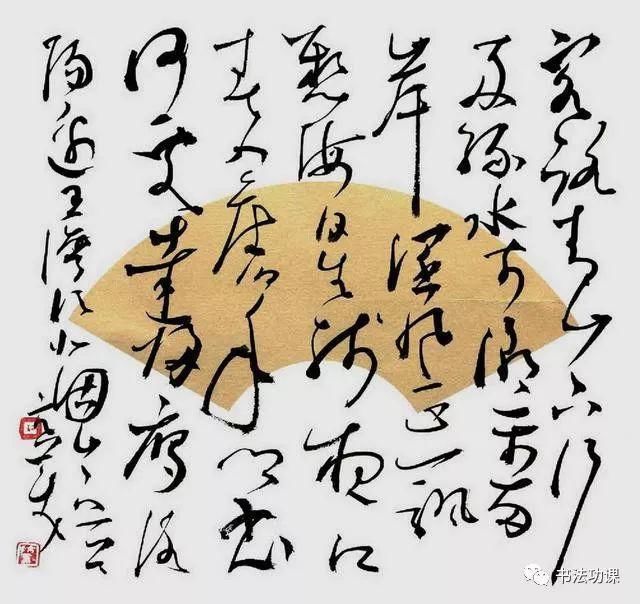 客路青山下行
舟绿水前潮平两
岸濶风正一帆
悬海日生残夜江
春入旧年乡书
何处达归雁洛
阳边王湾次北固山下
书法功课